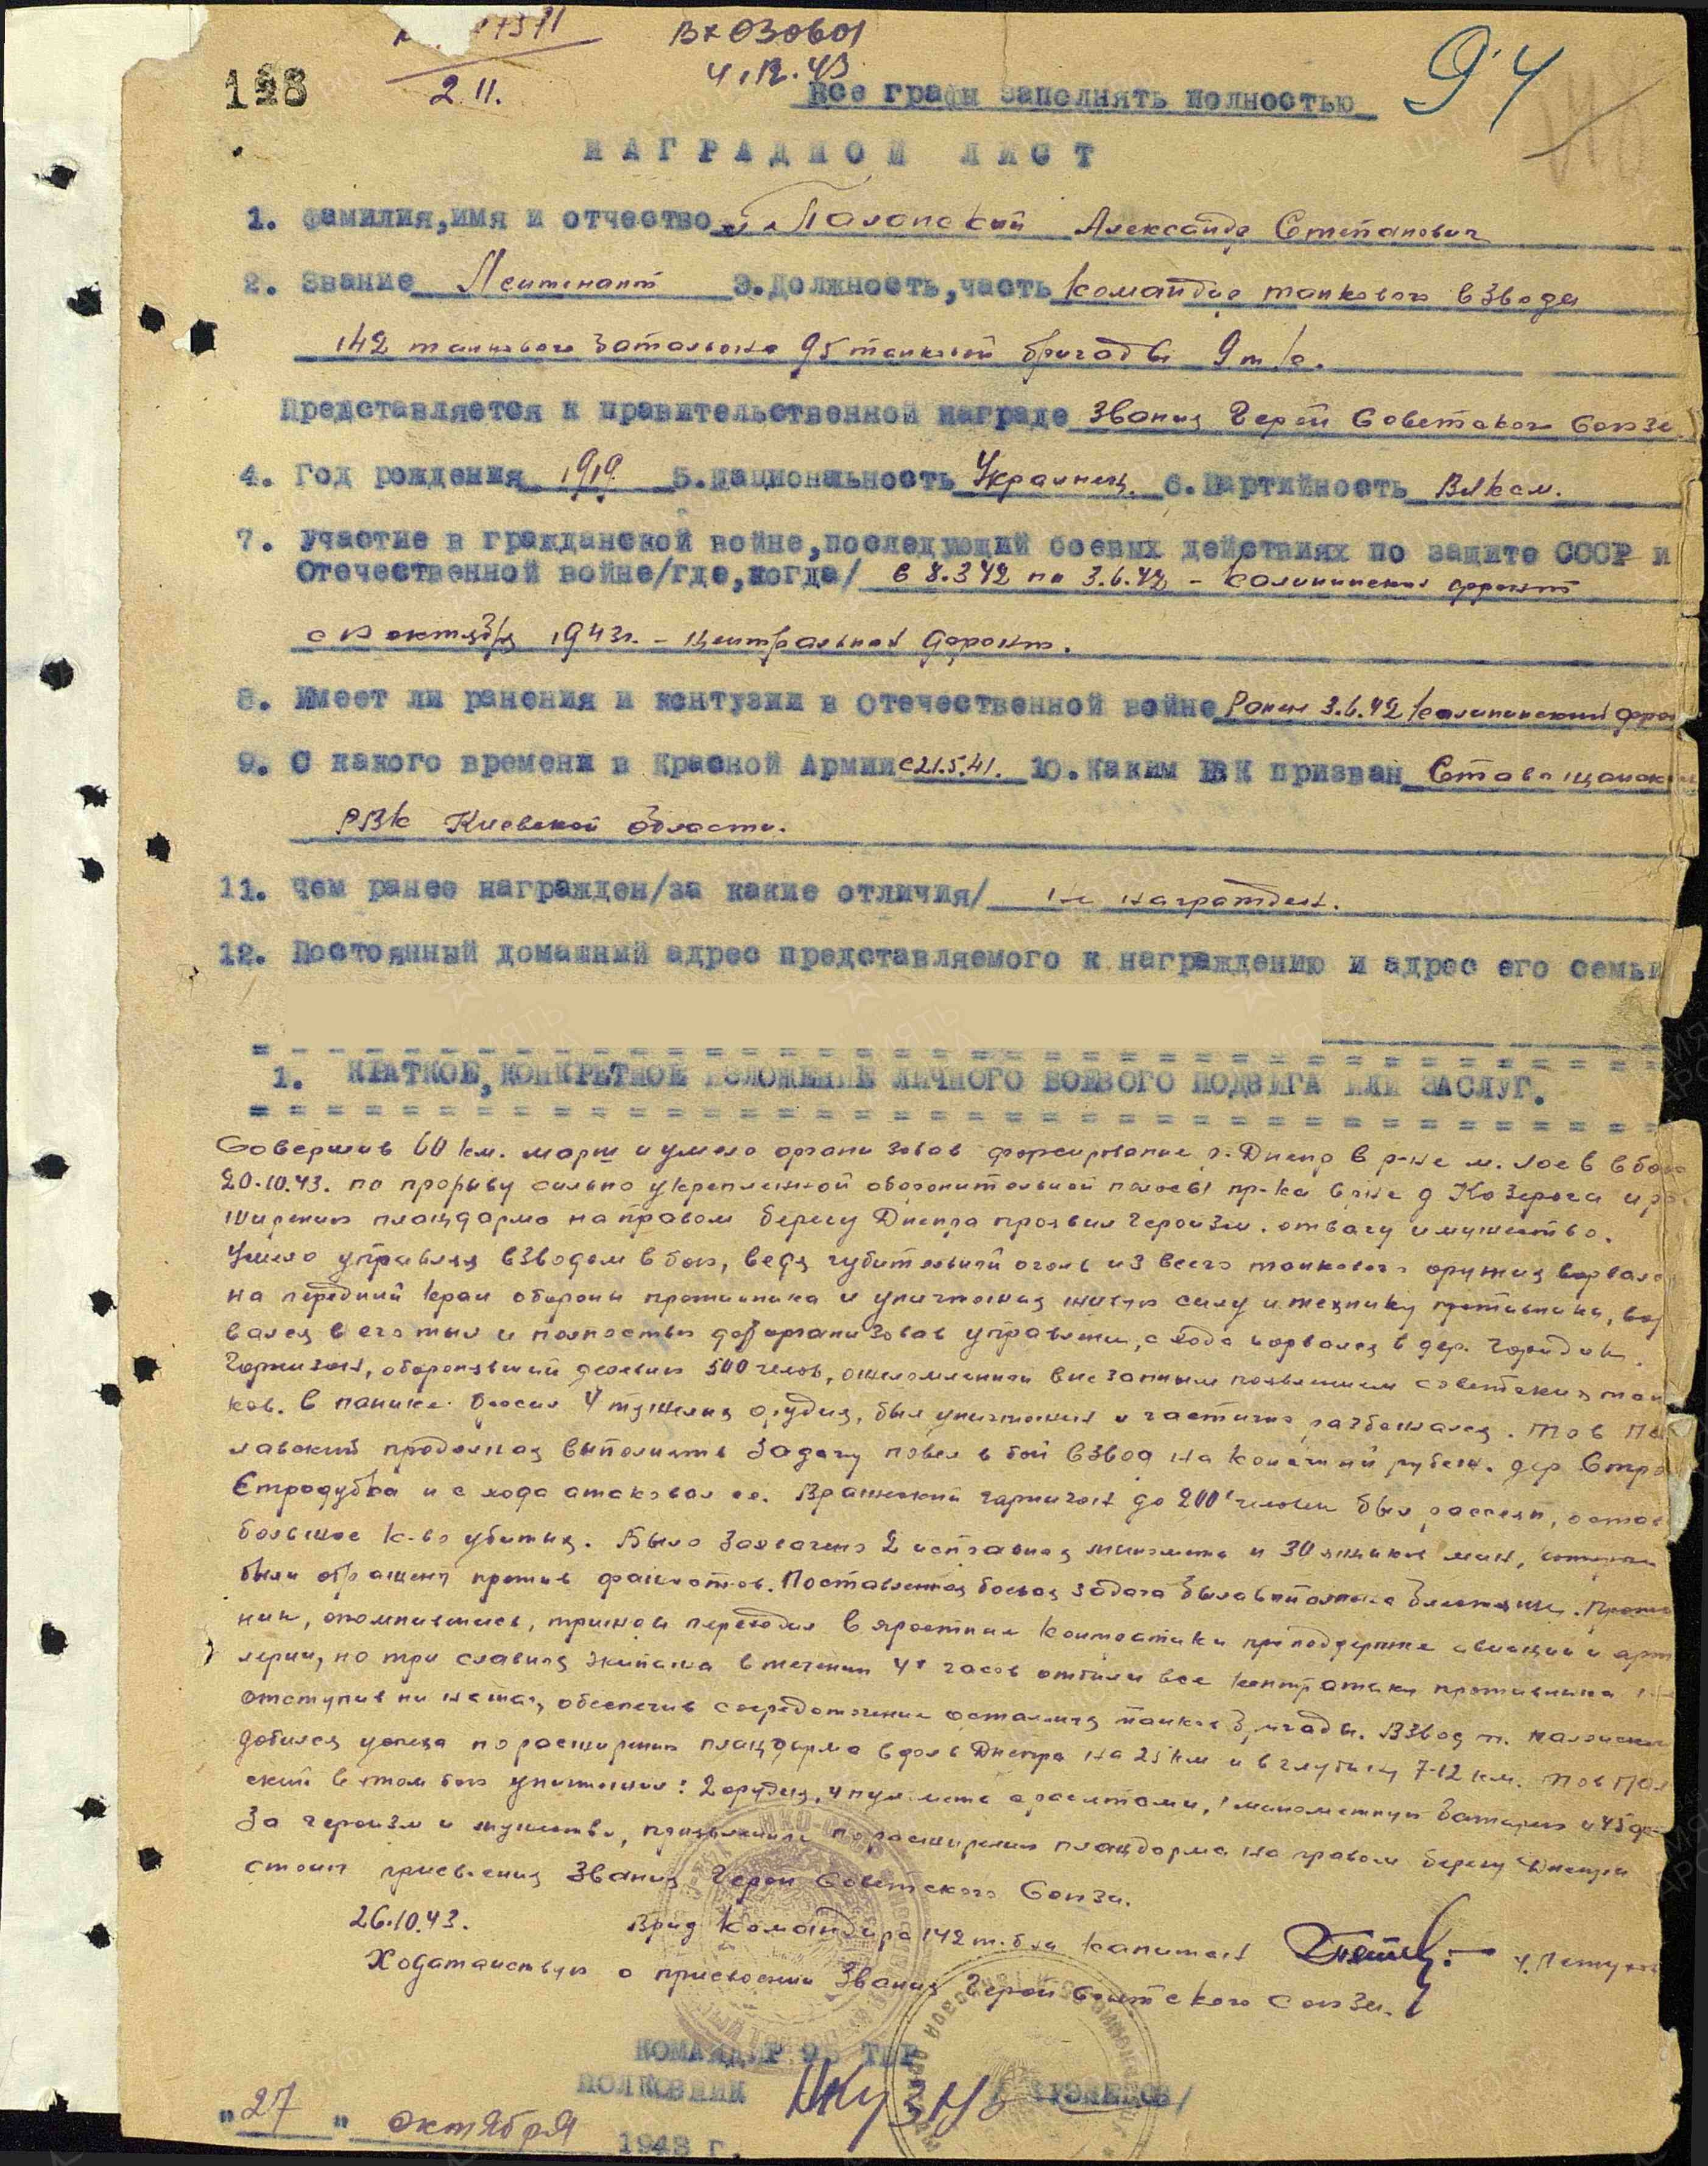 128
2.11.
Вх 030601
4.12.43
94
Все графы заполнять полностью
НАГРАДНОЙ ЛИСТ
1. Фамилия, имя и отчество Александр Степанович
2. Звание Лейтенант 3. Должность, часть Командир танкового взвода
142 танкового батальона 95 танковой бригады 9 т/к.
Представляется к правительственной награде звания Герой Советского Союза
4. Год рождения 1919. 5. Национальность Украинец. 6. Партийность ВЛКСМ.
7. Участие в гражданской войне, последующий боевых действиях по защите СССР и
Отечественной войне/где, когда/ с 8.3 42 по 3.6.42 – Калининский фронт
октября 1943г. – Центральный фронт.
8. Имеет ли ранения и контузии в Отечественной войне Ранен 3.6.42 Калининский
9. С какого времени в Красной Армии с 21.5.41. 10. Каким РВК призван
РВК Киевской области.
11. Чем ранее награжден/за какие отличия/ не награжден.
12. Постоянный домашний адрес представляемого к награждению и адрес его семьи
1. КРАТКОЕ, КОНКРЕТНОЕ ИЗЛОЖЕНИЕ ЛИЧНОГО БОЕВОГО ПОДВИГА ИЛИ ЗАСЛУГ.
Совершив 60 км. марш и умело организовав форсирование р. Днепр в р-не м. Лоев в бою
20.10.43. по прорыву сильно укрепленной оборонительной полосы пр-ка в р-не д
ширению плацдарма на правом берегу Днепра проявил героизм. отвагу и мужество.
Умело управляя взводом в бою, ведя губительный огонь из всего танкового оружия ворвался
на передний край обороны противника и уничтожая живую силу и технику противника, вор
вался в его тыл и полностью дезорганизовав управление, с хода ворвался в дер.
Гарнизон, оборонявший деревню 500 челов, ошеломленный внезапным появлением советских тан
ков. в панике бросил 4 тяжелых орудия, был уничтожен и частично разбежался. Тов
продолжая выполнять задачу повел в бой взвод на конечный рубеж. дер
и с хода атаковал ее. Вражеский гарнизон до 200 человек был рассеян, остав
большое к-во убитых. Было захвачено 2 исправных миномета и 30 ящиков мин, которые
были обращены против фашистов. Поставленная боевая задача была выполнена блестяще. Против
ник, опомнившись, трижды переходил в яростные контратаки при поддержке авиации и арт
лерии, но три славных экипажа в течении 4х часов отбили все контратаки противника не
отступив ни на шаг, обеспечив сосредоточение остальных танков бригады. Взвод т.
добился успеха по расширению плацдарма вдоль Днепра на 25 км и в глубину 7-12 км. Тов
ский в этом бою уничтожил: 2 орудия, 4 пулемета с расчетами, 1 минометную батарею и 45
За героизм и мужество, проявленные по расширению плацдарма на правом берегу Днепра
стоин присвоения звания Герой Советского Союза.
26.10.43. Врид командира 142 т.б-на капитан
Ходатайствую о присвоении звания Герой Советского Союза.
КОМАНДИР 95 ТБР
ПОЛКОВНИК /КУЗНЕЦОВ/
"27" октября 1943 г.